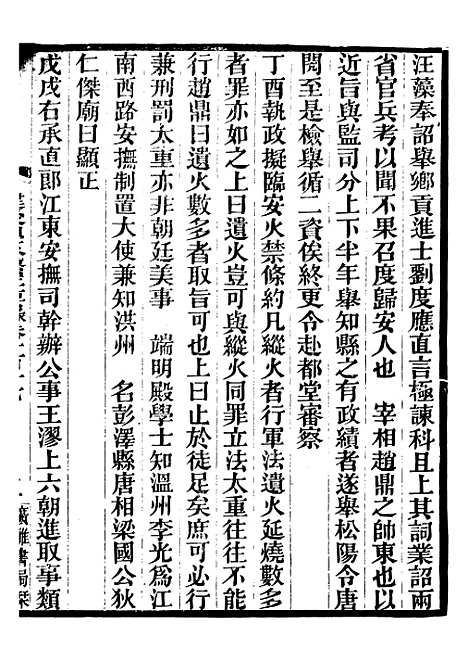 汪藻奉詔舉鄉貢進士劉度應直言極諫科且上其詞業詔兩
省官兵考以聞不果召度歸安人也　宰相趙鼎之帥東也以
近旨與監司分上下半年舉知縣之有政績者遂舉松陽令唐
閱至是檢舉循二資俟終更令赴都堂審察
丁酉執政擬臨安火禁條約凡縱火者行軍法遺火延燒數多
者罪亦如之上曰遺火豈可與縱火同罪立法太重往往不能
行趙鼎曰遺火數多者取旨可也上曰止於徒足矣庶可必行
兼刑罰太重亦非朝廷美事　端明殿學士知溫州李光爲江
南西路安撫制置大使兼知洪州　名彭澤縣唐相梁國公狄
仁傑廟曰顯正
戊戌右承直郎江東安撫司幹辦公事王漻上六朝進取事類
廣雅書局栞